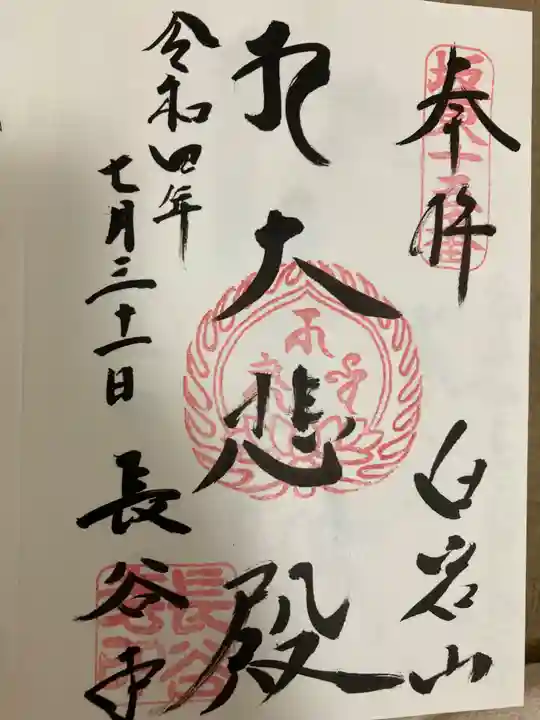 奉拝
坂東十五番
白岩山
大悲殿
令和四年
七月三十一日
長谷寺
長谷